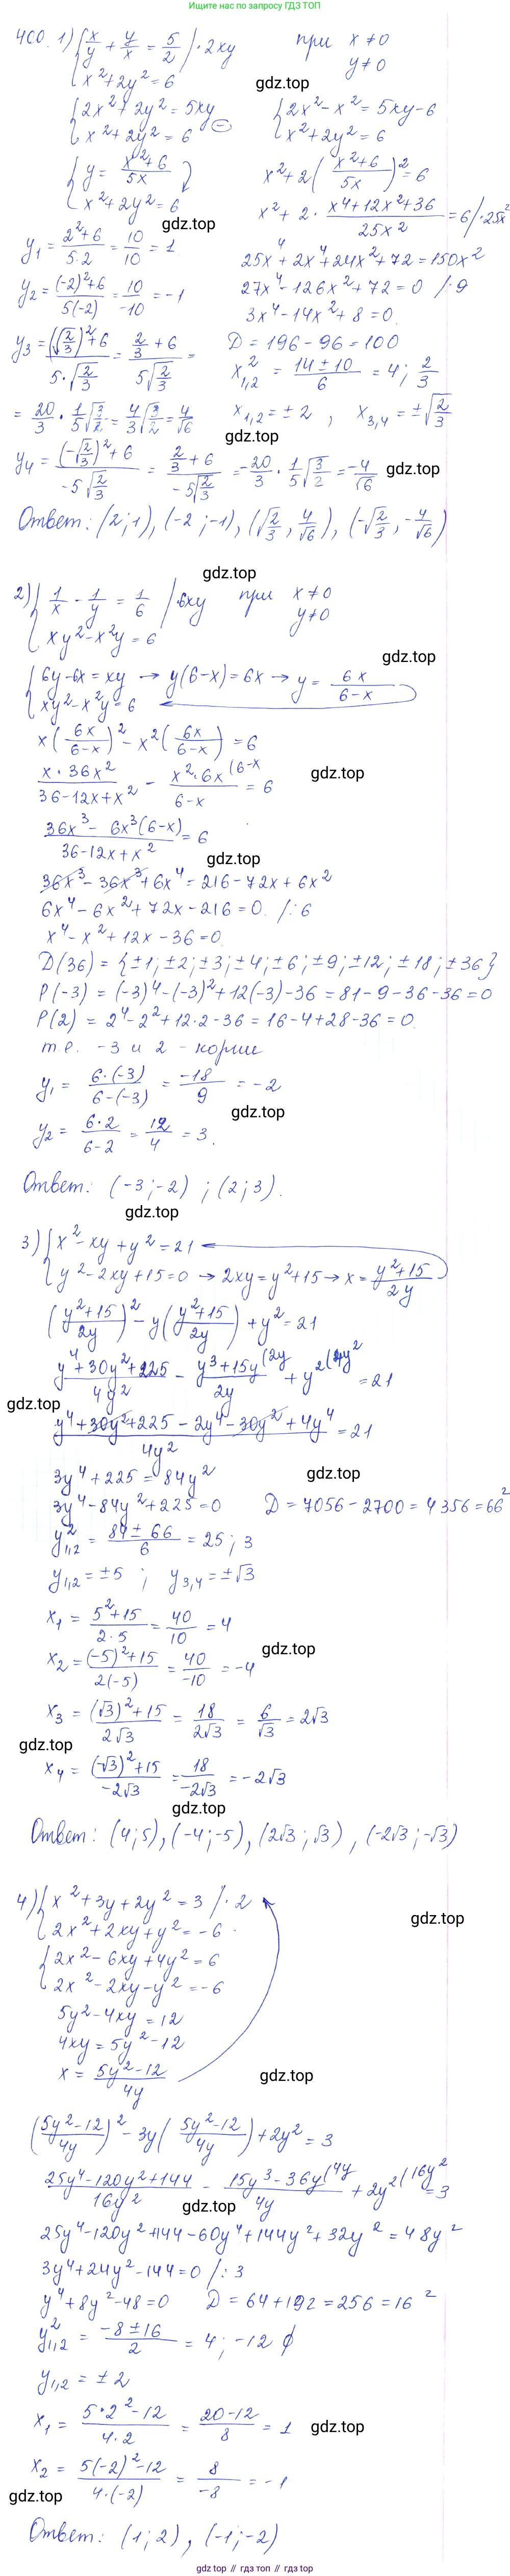 Ищите нас по запросу гдз.топ
400. 1) { x/y + y/x = 5/2 /· 2xy при x ≠ 0
x² + 2y² = 6 y ≠ 0
gdz.top
{ 2x² + 2y² = 5xy { 2x² - x² = 5xy - 6
x² + 2y² = 6 ⊖ x² + 2y² = 6
{ y = (x²+6)/5x x² + 2((x²+6)/5x)² = 6
x² + 2y² = 6
gdz.top
x² + 2 · (x⁴+12x²+36)/25x² = 6 /· 25x²
y₁ = (2²+6)/(5·2) = 10/10 = 1 25x⁴ + 2x⁴ + 24x² + 72 = 150x²
y₂ = ((-2)²+6)/(5(-2)) = 10/-10 = -1 27x⁴ - 126x² + 72 = 0 /: 9
3x⁴ - 14x² + 8 = 0.
y₃ = ((√(2/3))²+6)/(5·√(2/3)) = (2/3 + 6)/(5√(2/3)) = D = 196 - 96 = 100
x²₁,₂ = (14 ± 10)/6 = 4; 2/3
= 20/3 · 1/5 √(3/2) = 4/3 √(3/2) = 4/√6 x₁,₂ = ± 2 , x₃,₄ = ±√(2/3)
gdz.top
y₄ = ((-√(2/3))²+6)/(-5√(2/3)) = (2/3 + 6)/(-5√(2/3)) = -20/3 · 1/5 √(3/2) = -4/√6
gdz.top
Ответ: (2; 1), (-2; -1), (√(2/3), 4/√6), (-√(2/3), -4/√6)
gdz.top
2) { 1/x - 1/y = 1/6 /·6xy при x ≠ 0
xy² - x²y = 6 y ≠ 0
gdz.top
{ 6y - 6x = xy → y(6-x) = 6x → y = 6x/(6-x)
xy² - x²y = 6
x(6x/(6-x))² - x²(6x/(6-x)) = 6
(x·36x²)/(36-12x+x²) - (x²·6x (6-x)/(6-x) = 6
gdz.top
(36x³ - 6x³(6-x))/(36-12x+x²) = 6
gdz.top
36x³ - 36x³ + 6x⁴ = 216 - 72x + 6x²
6x⁴ - 6x² + 72x - 216 = 0. /: 6
x⁴ - x² + 12x - 36 = 0.
D(36) = {±1; ±2; ±3; ±4; ±6; ±9; ±12; ±18; ±36}
P(-3) = (-3)⁴ - (-3)² + 12(-3) - 36 = 81 - 9 - 36 - 36 = 0
P(2) = 2⁴ - 2² + 12·2 - 36 = 16 - 4 + 28 - 36 = 0.
т.е. -3 и 2 - корни
y₁ = 6·(-3)/(6-(-3)) = -18/9 = -2
gdz.top
y₂ = 6·2/(6-2) = 12/4 = 3.
Ответ: (-3; -2) ; (2; 3).
gdz.top
3) { x² - xy + y² = 21
y² - 2xy + 15 = 0 → 2xy = y² + 15 → x = (y²+15)/2y
((y²+15)/2y)² - y((y²+15)/2y) + y² = 21
(y⁴+30y²+225)/4y² - (y³+15y (2y)/2y + y² (4y² = 21
gdz.top
(y⁴ + 30y² + 225 - 2y⁴ - 30y² + 4y⁴)/4y² = 21
3y⁴ + 225 = 84y²
gdz.top
3y⁴ - 84y² + 225 = 0 D = 7056 - 2700 = 4356 = 66²
y²₁,₂ = (84 ± 66)/6 = 25; 3
y₁,₂ = ±5 ; y₃,₄ = ±√3
x₁ = (5²+15)/(2·5) = 40/10 = 4
gdz.top
x₂ = ((-5)²+15)/(2(-5)) = 40/-10 = -4
x₃ = ((√3)²+15)/(2√3) = 18/(2√3) = 6/√3 = 2√3
gdz.top
x₄ = ((-√3)²+15)/(-2√3) = 18/(-2√3) = -2√3
gdz.top
Ответ: (4; 5), (-4; -5), (2√3; √3), (-2√3; -√3)
4) { x² + 3y + 2y² = 3 /· 2
2x² + 2xy + y² = -6
gdz.top
{ 2x² - 6xy + 4y² = 6
2x² - 2xy - y² = -6
5y² - 4xy = 12
4xy = 5y² - 12
x = (5y²-12)/4y
gdz.top
((5y²-12)/4y)² - 3y((5y²-12)/4y) + 2y² = 3
(25y⁴-120y²+144)/16y² - (15y³-36y (4y)/4y + 2y² (16y² = 3
gdz.top
25y⁴ - 120y² + 144 - 60y⁴ + 144y² + 32y² = 48y²
3y⁴ + 24y² - 144 = 0 /: 3
y⁴ + 8y² - 48 = 0 D = 64 + 192 = 256 = 16²
y²₁,₂ = (-8 ± 16)/2 = 4; -12 ∅
y₁,₂ = ± 2
x₁ = (5·2²-12)/(4·2) = (20-12)/8 = 1
gdz.top
x₂ = (5(-2)²-12)/(4·(-2)) = 8/-8 = -1
gdz.top
Ответ: (1; 2), (-1; -2)
gdz.top // гдз.топ // gdz.top